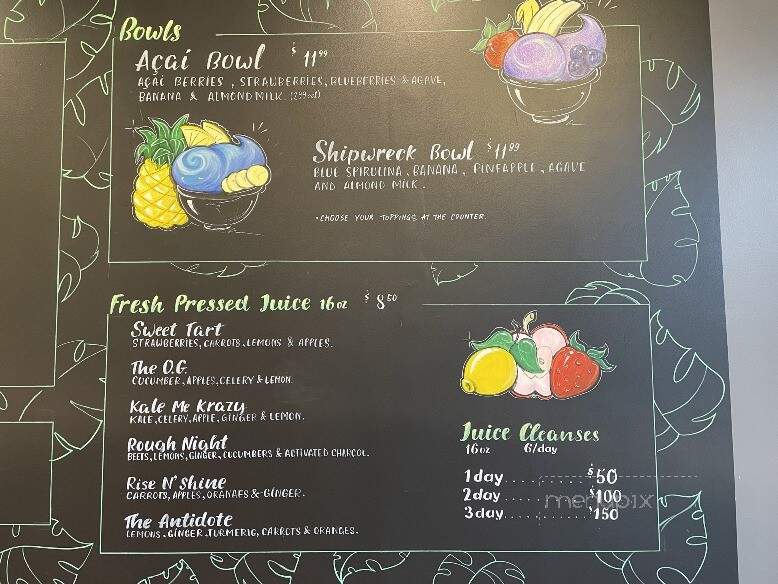 Bowls
Açaí Bowl $11.99
AÇAÍ BERRIES, STRAWBERRIES, BLUEBERRIES & AGAVE,
BANANA & ALMOND MILK.
Shipwreck Bowl $11.99
BLUE SPIRULINA, BANANA, PINEAPPLE, AGAVE
AND ALMOND MILK.
•CHOOSE YOUR TOPPINGS AT THE COUNTER.
Fresh Pressed Juice 16oz $8.50
Sweet Tart
STRAWBERRIES, CARROTS, LEMONS & APPLES.
The O.G.
CUCUMBER, APPLES, CELERY & LEMON.
Kale Me Krazy
KALE, CELERY, APPLE, GINGER & LEMON.
Rough Night
BEETS, LEMONS, GINGER, CUCUMBERS & ACTIVATED CHARCOL.
Rise N' Shine
CARROTS, APPLES, ORANGES & GINGER.
The Antidote
LEMONS, GINGER, TURMERIC, CARROTS & ORANGES.
Juice Cleanses
16oz 6/day
1 day . . . . . . . . . $50
2 day . . . . . . . . . $100
3 day . . . . . . . . . $150
menupix